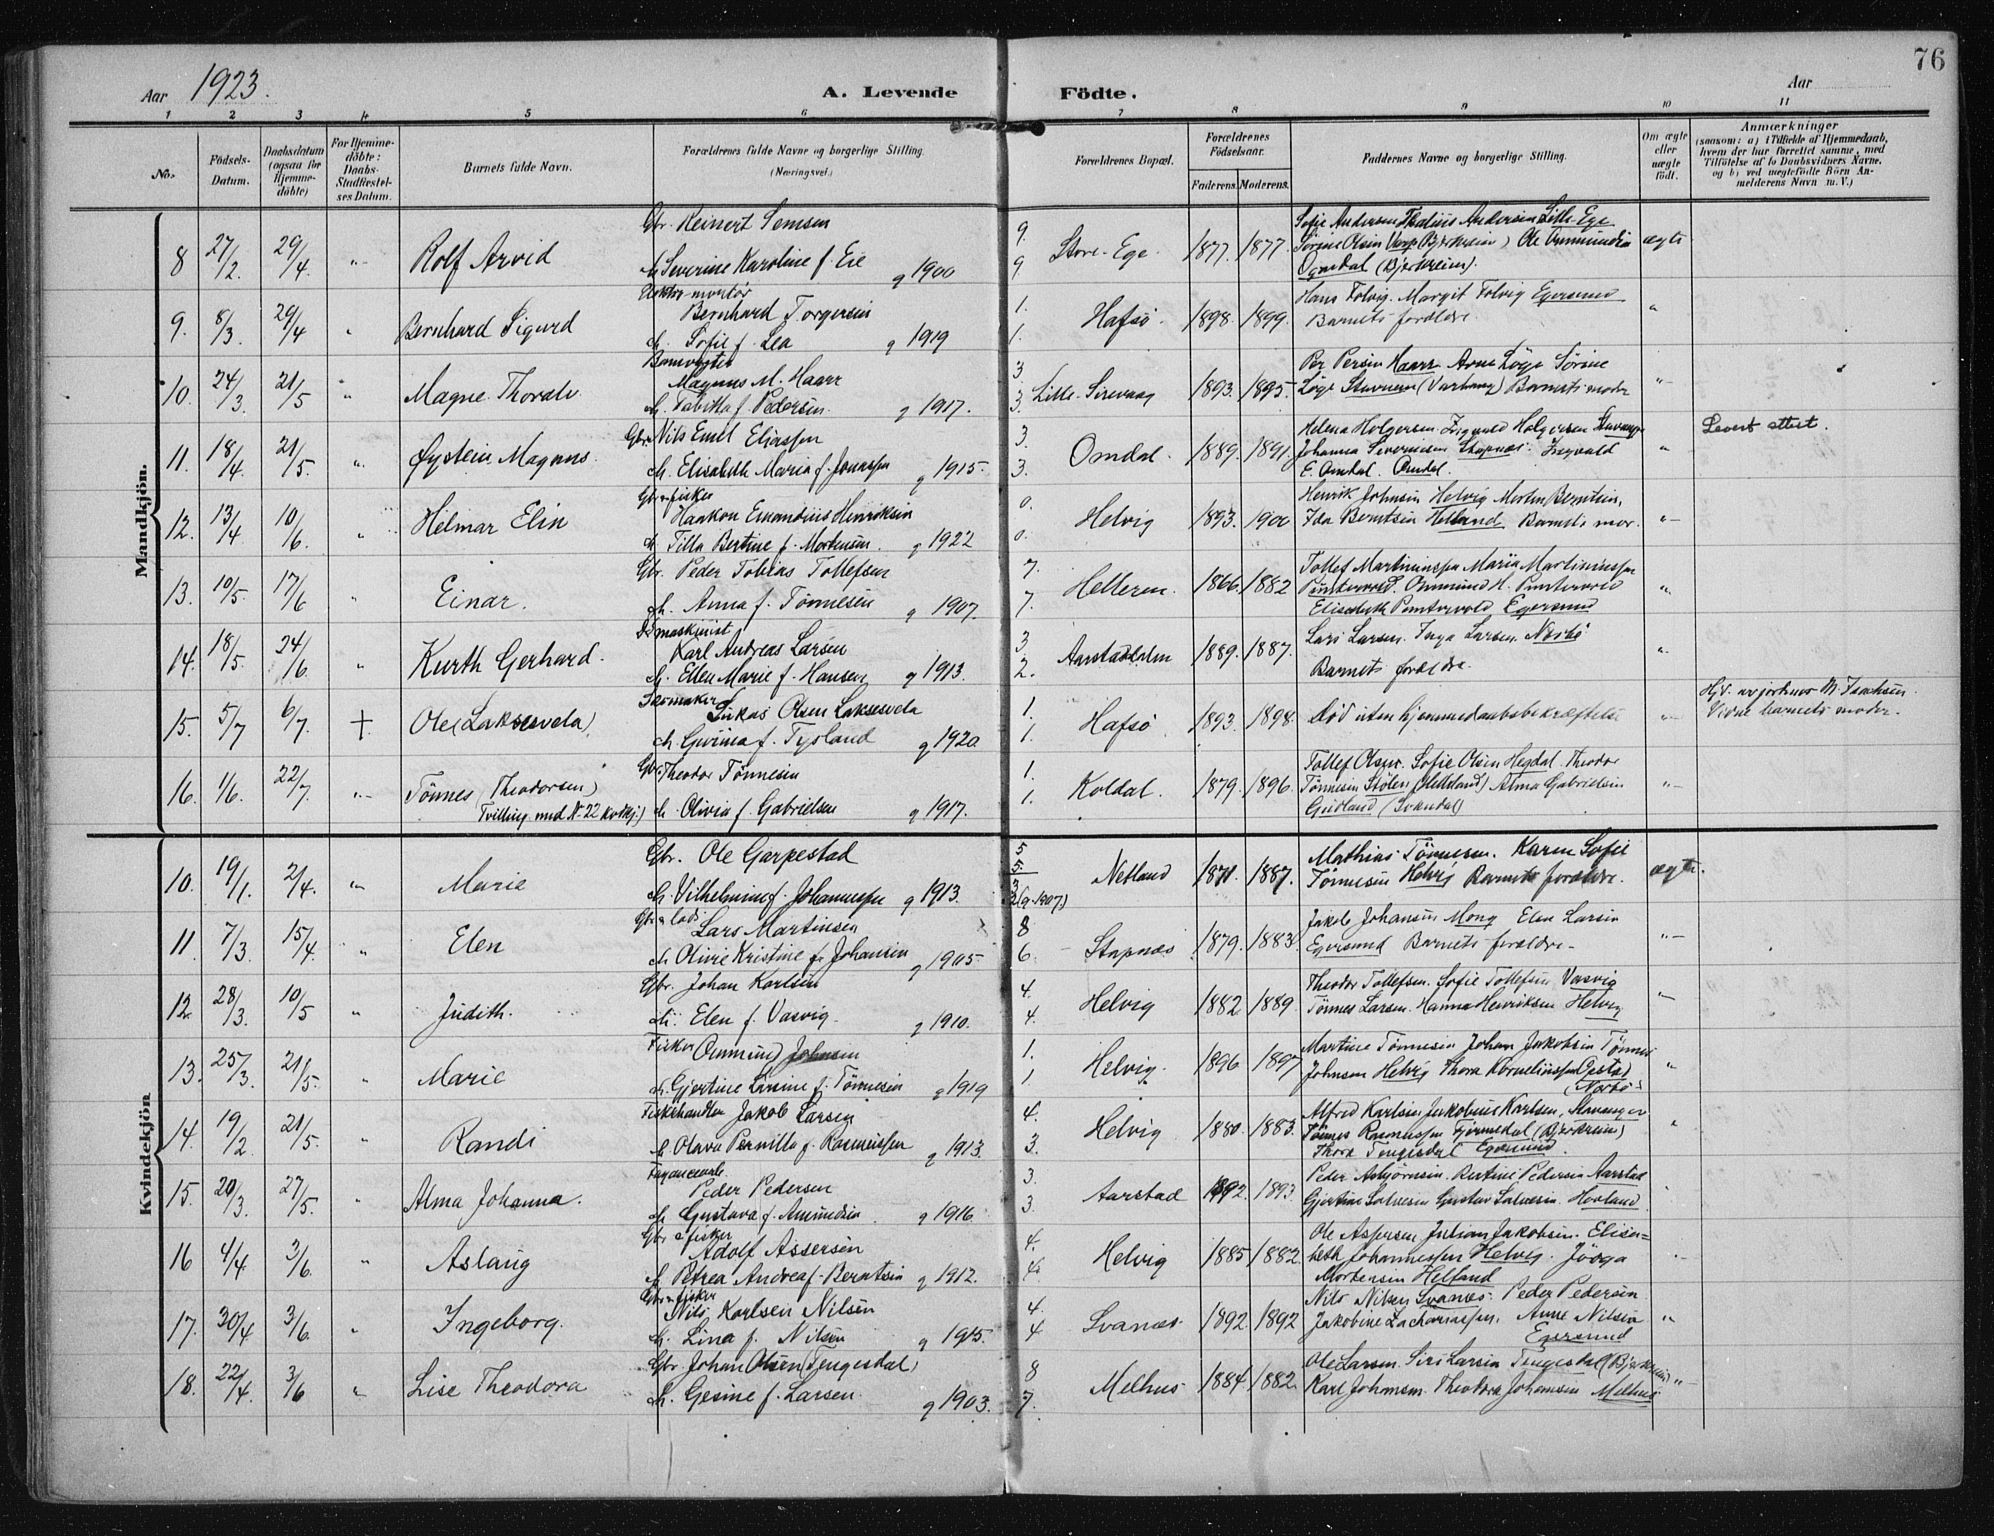 76
Aar 1923.
A. Levende Födte.
Aar
1 2 3 4 5 6 7 8 9 10 11
No.
Födsels-Datum.
Daabsdatum (ogsaa for Hjemme-döbte)
For Hjemme-döbte: Daabs-Stadfæstel-ses Datum.
Barnets fulde Navn.
Forældrenes fulde Navne og borgerlige Stilling.
(Næringsvei.)
Forældrenes Bopæl.
Forældrenes Födselsaar.
Faderens. Moderens.
Faddernes Navne og borgerlige Stilling.
Om ægte eller uægte födt.
Anmærkninger
(saasom: a) i Tilfælde af Hjemmedaab, hvem der har forrettet samme, med Tilföielse af to Daabsvidners Navne, og b) ved uægtefödte Börn An-melderens Navn m. V.)
Mandkjön.
Gbr. Reinert Semsen
9. Sofie Andersen Andersen Lille Ege
8 27/2 29/4 " Rolf Arvid
h Severine Karoline f. Eie g 1900
9 Store-Ege. 1877. 1877. Sørine Olsen Ole ægte
Ogndal (Bjerkreim).
Bernhard Torgersen
1. Hans Folvig. Margit Folvig Egersund
9. 8/3 29/4 " Bernhard Sigurd
h. Sofie f. Lea g 1919
1. Hafsö. 1898. 1899. Barnets forældre. "
Magnus M. Haarr
3 Per Haarr Arne Löge Sörine
10. 24/3 21/5 " Magne Thoralv
h. Tabitha f. Pedersen. g 1917.
3. Lille Sirevaag 1893. 1895. Löge (Varhaug) Barnets moder "
Gbr. Nils Emil Eliassen
3. Helena Holgersen Holgersen
11. 18/4 21/5. " Øystein Magnus.
h. Elisabeth Maria f. Jonassen g 1915.
3. Omdal. 1889. 1891. Johanna Severinsen Stapnæs. Ingvald "
E. Omdal. Omdal.
Levert attest.
Gbr. fisker
Haakon Henriksen
0. Henrik Johnsen Helvig Morten Berntsen,
12. 13/4 10/6. " Hilmar Elin
h. Tilla Bertine f. Mortensen. g 1922
0. Helvig 1893. 1900 Ida Berntsen Helland Barnets mor. "
Gbr. Peder Tobias Tollefsen
7. Tollef Martinussen Maria Martinussen
13. 10/5. 17/6 " Einar.
h. Anna f. Tönnesen g 1907.
7. Helleren. 1866. 1882 Puntervold. Ommund H. Puntervold "
Elisabeth Puntervold Egersund
maskinist
Karl Andreas Larsen
3 Lars Larsen. Inga Larsen Nærbö
14. 18/5. 24/6 " Kurth Gerhard.
h. Ellen Marie f. Hansen g 1913.
2. Aarstadholm 1889. 1887. Barnets forældre. "
Skomaker Lukas Olsen Laksesvela
15. 5/7 6/7. † Ole (Laksesvela)
h. f. Tysland g 1920.
1. 1. Hafsö 1893. 1898. Död uten hjemmedaabsbekræftelse "
Hjd. av jordmor M. Isachsen.
Vidne barnets moder.
Gbr. Theodor Tönnesen
1. Tollef Olsen. Sofie Olsen Hegdal Theodor
16. 1/6. 22/7. " Tönnes (Theodorsen)
Tvilling med N. 22 kvdkj.)
h. Olivia f. Gabrielsen g 1917.
1. Koldal. 1879. 1896. Tönnesen Stölen (Helleland) Alma Gabrielsen "
Gudland
Kvindekjön
Gbr. Ole Garpestad
5 Mathias Tönnesen. Karen Sofie
10. 19/1. 2/4. " Marie
h Vilhelmine f. Johannessen g 1913.
5. Netland 1871. 1887. Tönnesen Helvig Barnets forældre. ægte.
3 2 (g. 1907.)
Lars Martinsen
8 Jakob Johansen Mong Elen Larsen
11. 7/3. 15/4. " Elen
h Olivie Kristine f. Johansen g 1905
6 Stapnæs 1879. 1883. Egersund Barnets forældre. "
Gbr. Johan Karlsen
4. Theodor Tollefsen. Sofie Tollefsen Vasvig
12. 28/3. 10/5 " Judith.
h. Elen f. Vasvig. g 1910.
4. Helvig 1882 1889 Tönnes Larsen. Hanna Henriksen Helvig "
Fisker Ommund Johnsen
1. Martine Tönnesen Johan Jakobsen Tönnes
13. 25/3. 21/5. " Marie
h. Gjertine Larsine f. Tönnesen g 1919
1 Helvig. 1896 1897 Johnsen Helvig Thora Kornelinssen "
(Nærbö)
Fiskehandler Jakob Larsen
4. Alfred Karlsen Jakobine Karlsen, Stavanger
14. 19/2. 21/5. " Randi
h. Olava Pernilla f. Rasmussen g 1913.
3. Helvig 1880. 1883. Tönnes Rasmussen (Bjerkreim) "
Thora Tengesdal Egersund
Peder Pedersen
3. Peder Asbjörnsen. Bertine Pedersen Aarstad
15. 20/3. 27/5. " Alma Johanna.
h. Gustava f. Amundsen. g 1916.
3. Aarstad 1892. 1893. Gjertine Salvesen Gustav Salvesen Hovland "
Gbr. & fisker
Adolf Assersen
4. Ole Assersen Julian Jakobsen. Elisa-
16 4/4 3/6. " Aslaug
h. Petrea Andrea f. Berntsen g 1912.
4. Helvig 1885 1882. beth Johannessen Helvig. "
Mortensen Helland
Gbr. & fisker
Nils Karlsen Nilsen
4. Nils Nilsen Svanæs. Peder Pedersen
17. 30/4 3/6. " Ingeborg.
h. Lina f. Nilsen g 1915.
4 Svanæs. 1892. 1892 Jakobine Zachariassen. Anne Nilsen "
Egersund
Gbr. Johan Olsen (Tengesdal)
8 Ole Larsen. Siri Larsen Tengesdal (Bjerkreim)
18. 22/4. 3/6 " Lise Theodora
h. Gesine f. Larsen g 1903.
7. Melhus 1884 1882. Karl Johansen. Theodora Johansen Melhus "